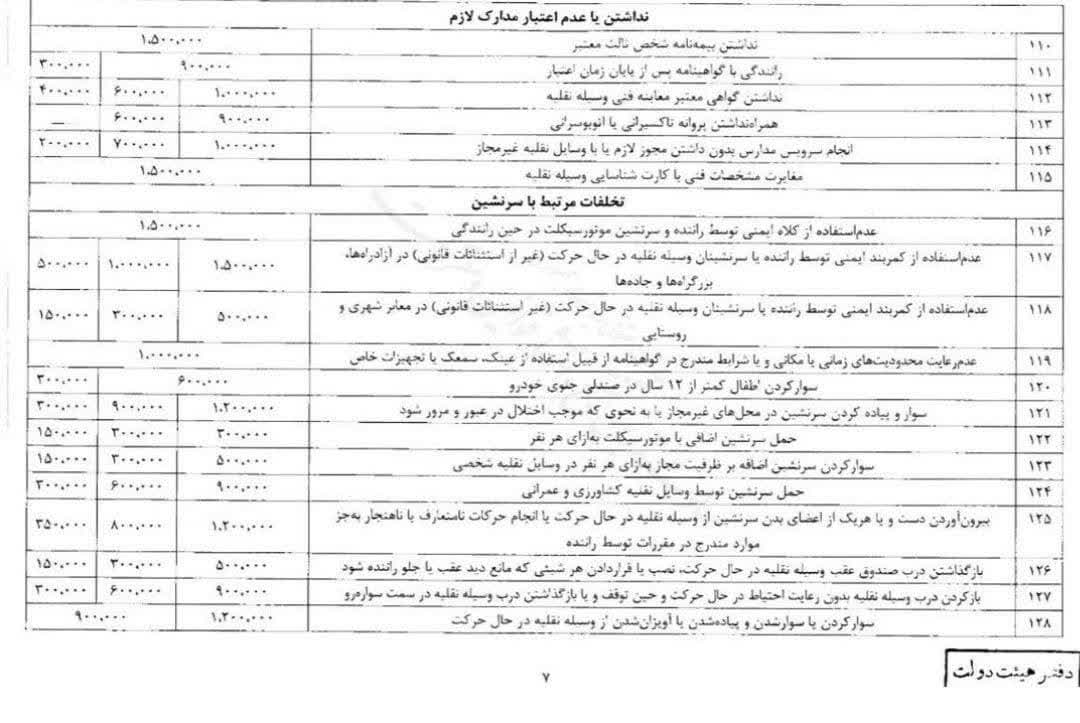 نداشتن یا عدم اعتبار مدارک لازم
۱۱۰ نداشتن بیمه‌نامه شخص ثالث معتبر ۱،۵۰۰،۰۰۰
۱۱۱ رانندگی با گواهینامه پس از پایان زمان اعتبار ۹۰۰،۰۰۰ ۳۰۰،۰۰۰
۱۱۲ نداشتن گواهی معتبر معاینه فنی وسیله نقلیه ۱،۰۰۰،۰۰۰ ۶۰۰،۰۰۰ ۴۰۰،۰۰۰
۱۱۳ همراه‌نداشتن پروانه تاکسیرانی یا اتوبوسرانی ۹۰۰،۰۰۰ ۶۰۰،۰۰۰ —
۱۱۴ انجام سرویس مدارس بدون داشتن مجوز لازم یا با وسایل نقلیه غیرمجاز ۱،۰۰۰،۰۰۰ ۷۰۰،۰۰۰ ۲۰۰،۰۰۰
۱۱۵ مغایرت مشخصات فنی با کارت شناسایی وسیله نقلیه ۱،۵۰۰،۰۰۰
تخلفات مرتبط با سرنشین
۱۱۶ عدم‌استفاده از کلاه ایمنی توسط راننده و سرنشین موتورسیکلت در حین رانندگی ۱،۵۰۰،۰۰۰
۱۱۷ عدم‌استفاده از کمربند ایمنی توسط راننده یا سرنشینان وسیله نقلیه در حال حرکت (غیر از استثنائات قانونی) در آزادراه‌ها، ۱،۵۰۰،۰۰۰ ۱،۰۰۰،۰۰۰ ۵۰۰،۰۰۰
بزرگراه‌ها و جاده‌ها
۱۱۸ عدم‌استفاده از کمربند ایمنی توسط راننده یا سرنشینان وسیله نقلیه در حال حرکت (غیر استثنائات قانونی) در معابر شهری و ۵۰۰،۰۰۰ ۳۰۰،۰۰۰ ۱۵۰،۰۰۰
روستایی
۱۱۹ عدم‌رعایت محدودیت‌های زمانی یا مکانی و یا شرایط مندرج در گواهینامه از قبیل استفاده از عینک، سمعک یا تجهیزات خاص ۱،۰۰۰،۰۰۰
۱۲۰ سوارکردن اطفال کمتر از ۱۲ سال در صندلی جلوی خودرو ۶۰۰،۰۰۰ ۳۰۰،۰۰۰
۱۲۱ سوار و پیاده کردن سرنشین در محل‌های غیرمجاز یا به نحوی که موجب اختلال در عبور و مرور شود ۱،۲۰۰،۰۰۰ ۹۰۰،۰۰۰ ۳۰۰،۰۰۰
۱۲۲ حمل سرنشین اضافی با موتورسیکلت به‌ازای هر نفر ۳۰۰،۰۰۰ ۳۰۰،۰۰۰ ۱۵۰،۰۰۰
۱۲۳ سوارکردن سرنشین اضافه بر ظرفیت مجاز به‌ازای هر نفر در وسایل نقلیه شخصی ۵۰۰،۰۰۰ ۳۰۰،۰۰۰ ۱۵۰،۰۰۰
۱۲۴ حمل سرنشین توسط وسایل نقلیه کشاورزی و عمرانی ۹۰۰،۰۰۰ ۶۰۰،۰۰۰ ۳۰۰،۰۰۰
۱۲۵ بیرون‌آوردن دست و یا هریک از اعضای بدن سرنشین از وسیله نقلیه در حال حرکت یا انجام حرکات نامتعارف یا ناهنجار به‌جز ۱،۲۰۰،۰۰۰ ۸۰۰،۰۰۰ ۳۵۰،۰۰۰
موارد مندرج در مقررات توسط راننده
۱۲۶ بازگذاشتن درب صندوق عقب وسیله نقلیه در حال حرکت، نصب یا قراردادن هر شیئی که مانع دید عقب یا جلو راننده شود ۵۰۰،۰۰۰ ۳۰۰،۰۰۰ ۱۵۰،۰۰۰
۱۲۷ بازکردن درب وسیله نقلیه بدون رعایت احتیاط در حال حرکت و حین توقف و یا بازگذاشتن درب وسیله نقلیه در سمت سواره‌رو ۹۰۰،۰۰۰ ۶۰۰،۰۰۰ ۳۰۰،۰۰۰
۱۲۸ سوارکردن یا سوارشدن و پیاده‌شدن یا آویزان‌شدن از وسیله نقلیه در حال حرکت ۱،۲۰۰،۰۰۰ ۹۰۰،۰۰۰
۷
دفتر هیئت دولت